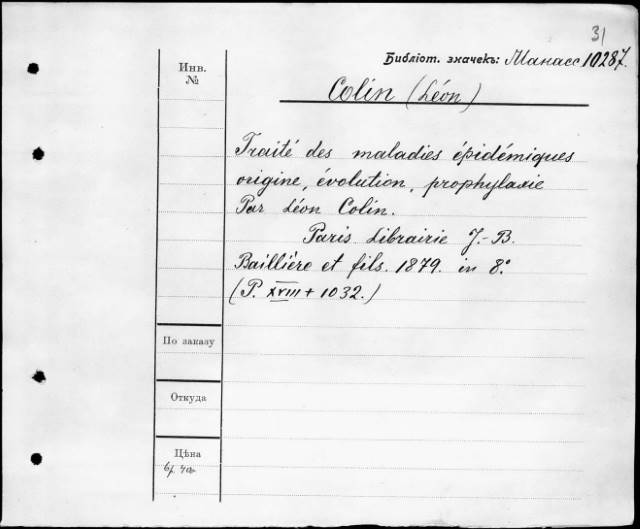 31
Библіот. значекъ: Манасс 10287.
Инв.
№
Colin (Léon)
Traité des maladies épidémiques
origine, évolution, prophylaxie
Par Léon Colin.
Paris Librairie J.-B.
Baillière et fils. 1879. in 8.º
(P. XVIII + 1032.)
По заказу
Откуда
Цѣна